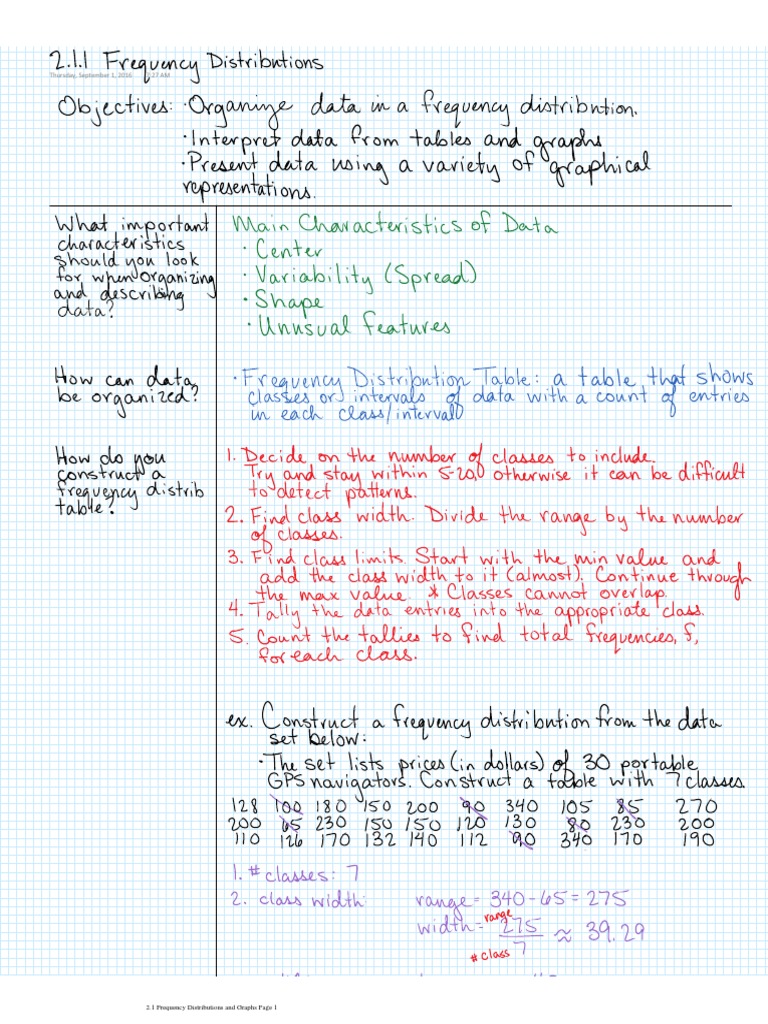 2.1.1 Frequency Distributions
Thursday, September 1, 2016 9:27 AM
Objectives: · Organize data in a frequency distribution.
· Interpret data from tables and graphs
· Present data using a variety of graphical
representations.
What important
characteristics
should you look
for when organizing
and describing
data?
Main Characteristics of Data
· Center
· Variability (Spread)
· Shape
· Unusual Features
How can data
be organized?
· Frequency Distribution Table: a table that shows
classes or intervals of data with a count of entries
in each class/interval
How do you
construct a
frequency distrib
table?
1. Decide on the number of classes to include.
Try and stay within 5-20, otherwise it can be difficult
to detect patterns.
2. Find class width. Divide the range by the number
of classes.
3. Find class limits. Start with the min value and
add the class width to it (almost). Continue through
the max value. * Classes cannot overlap.
4. Tally the data entries into the appropriate class.
5. Count the tallies to find total frequencies, f,
for each class.
ex. Construct a frequency distribution from the data
set below:
· The set lists prices (in dollars) of 30 portable
GPS navigators. Construct a table with 7 classes
128 100 180 150 200 90 340 105 85 270
200 65 230 150 150 120 130 80 230 200
110 126 170 132 140 112 90 340 170 190
1. # classes: 7
2. class width: range = 340 - 65 = 275
width = range 275 / # class 7 ≈ 39.29
2.1 Frequency Distributions and Graphs Page 1